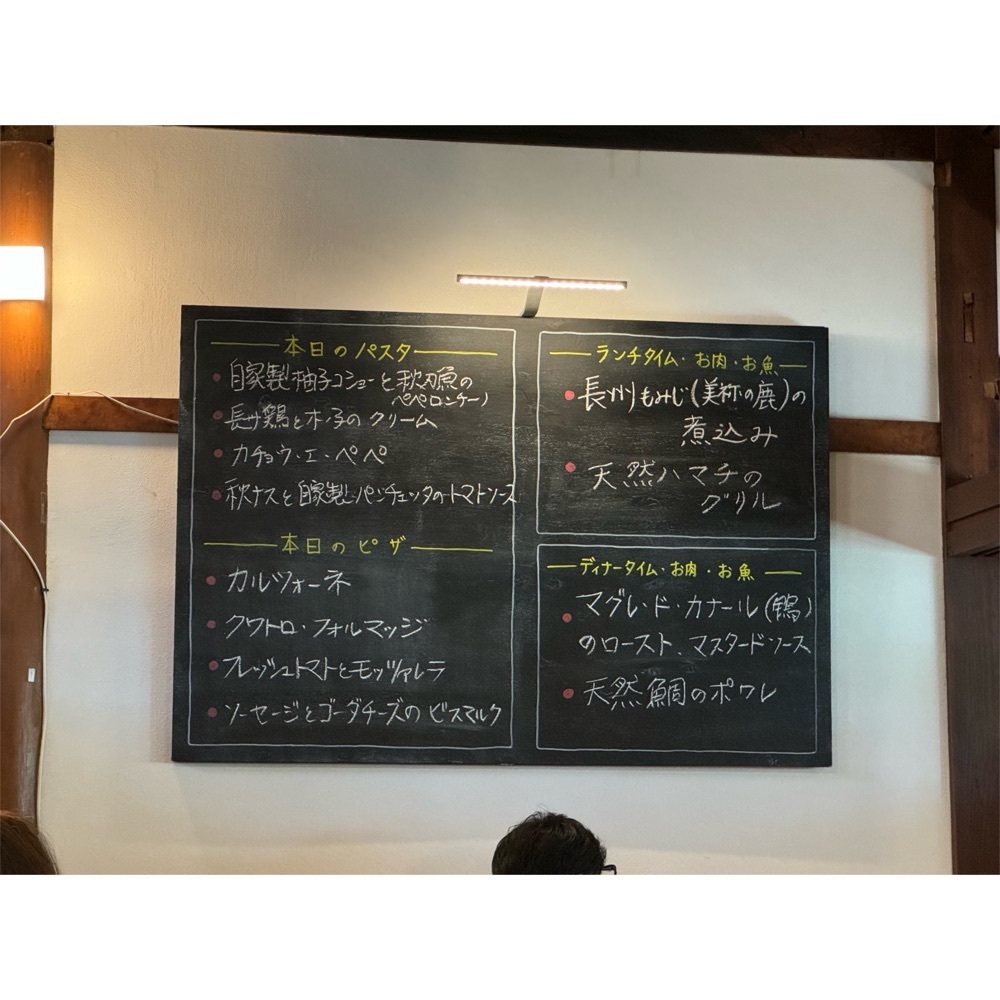 本日のパスタ
自家製柚子コショーと秋刀魚の
ペペロンチーノ
長州鶏ときのこのクリーム
カチョウ・エ・ペペ
秋ナスと自家製パンチェッタのトマトソース
本日のピザ
カルツォーネ
クワトロ・フォルマッジ
フレッシュトマトとモッツァレラ
ソーセージとゴーダチーズのビスマルク
ランチタイム・お肉・お魚
長州もみじ(美祢の鹿)の
煮込み
天然ハマチの
グリル
ディナータイム・お肉・お魚
マグレ・ド・カナール(鴨)
のロースト、マスタードソース
天然鯛のポワレ